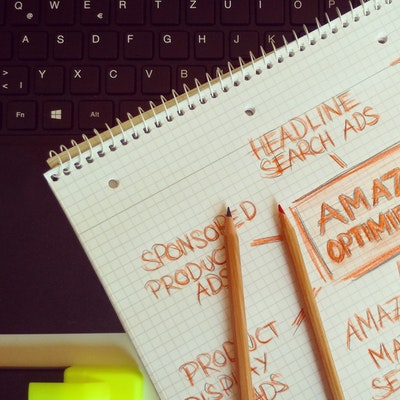 Q W E R T Z U I O P
@ €
A S D F G H J K L
> < | Y X C V B
Fn Alt
HEADLINE
SEARCH ADS
AMAZ
OPTIMI
SPONSORED
PRODUCT
ADS
AMAZ
MA
SE
PRODUCT
DISPLAY
ADS